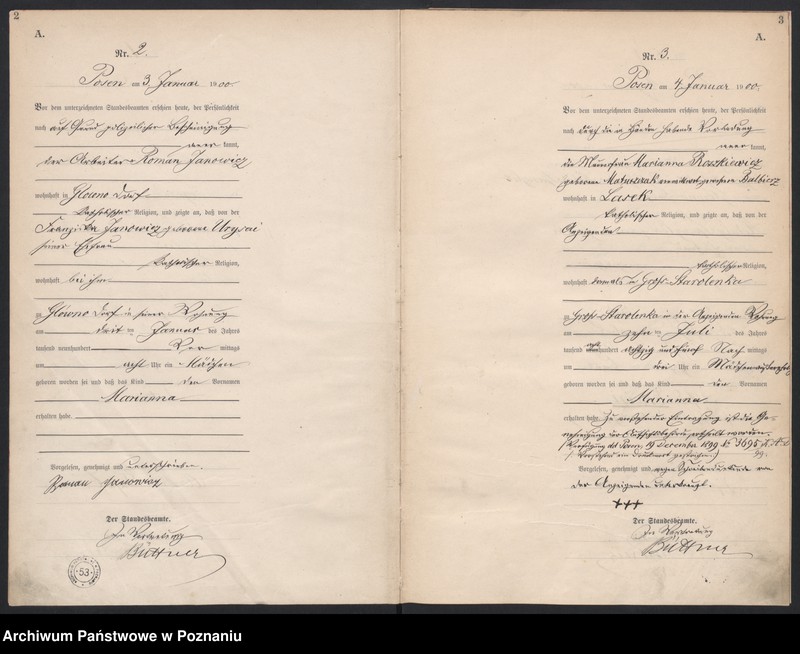 2
A.
Nr. 2.
Posen am 3. Januar 1900.
Vor dem unterzeichneten Standesbeamten erschien heute, der Persönlichkeit
nach auf Grund polizeilicher Bescheinigung
kannt,
der Arbeiter Roman Janowicz
wohnhaft in Glowno Dorf
katholischer Religion, und zeigte an, daß von der
Franziska Janowicz geborene
seiner Ehefrau
katholischer Religion,
wohnhaft bei ihm
zu Glowno Dorf in seiner Wohnung
am drei ten Januar des Jahres
tausend neunhundert Vor mittags
um acht Uhr ein Mädchen
geboren worden sei und daß das Kind den Vornamen
Marianna
erhalten habe.
Vorgelesen, genehmigt und unterschrieben.
Roman Janowicz
Der Standesbeamte.
In Vertretung
Büttner
53
3
A.
Nr. 3.
Posen am 4. Januar 1900.
Vor dem unterzeichneten Standesbeamten erschien heute, der Persönlichkeit
nach durch die in Händen habende Vorladung
kannt,
die Marianna Roszkiewicz
geborene Matuszak
wohnhaft in Lasek
katholischer Religion, und zeigte an, daß von der
Anzeigenden
katholischer Religion,
wohnhaft damals in Groß-Starolenka
zu Groß-Starolenka in der Anzeigenden Wohnung
am zehn ten Juli des Jahres
tausend acht hundert achtzig und fünf Nach mittags
um drei Uhr ein Mädchen
geboren worden sei und daß das Kind den Vornamen
Marianna
erhalten habe. Zu vorstehender Eintragung ist die Ge-
nehmigung der Aufsichtsbehörde ertheilt worden.
Verfügung des Posen, 19 Dezember 1899 No 3695
Vorstehend ein Druckwort gestrichen.
Vorgelesen, genehmigt und wegen Schreibensunkunde von
der Anzeigenden unterkreuzt.
+++
Der Standesbeamte.
In Vertretung
Büttner
Archiwum Państwowe w Poznaniu